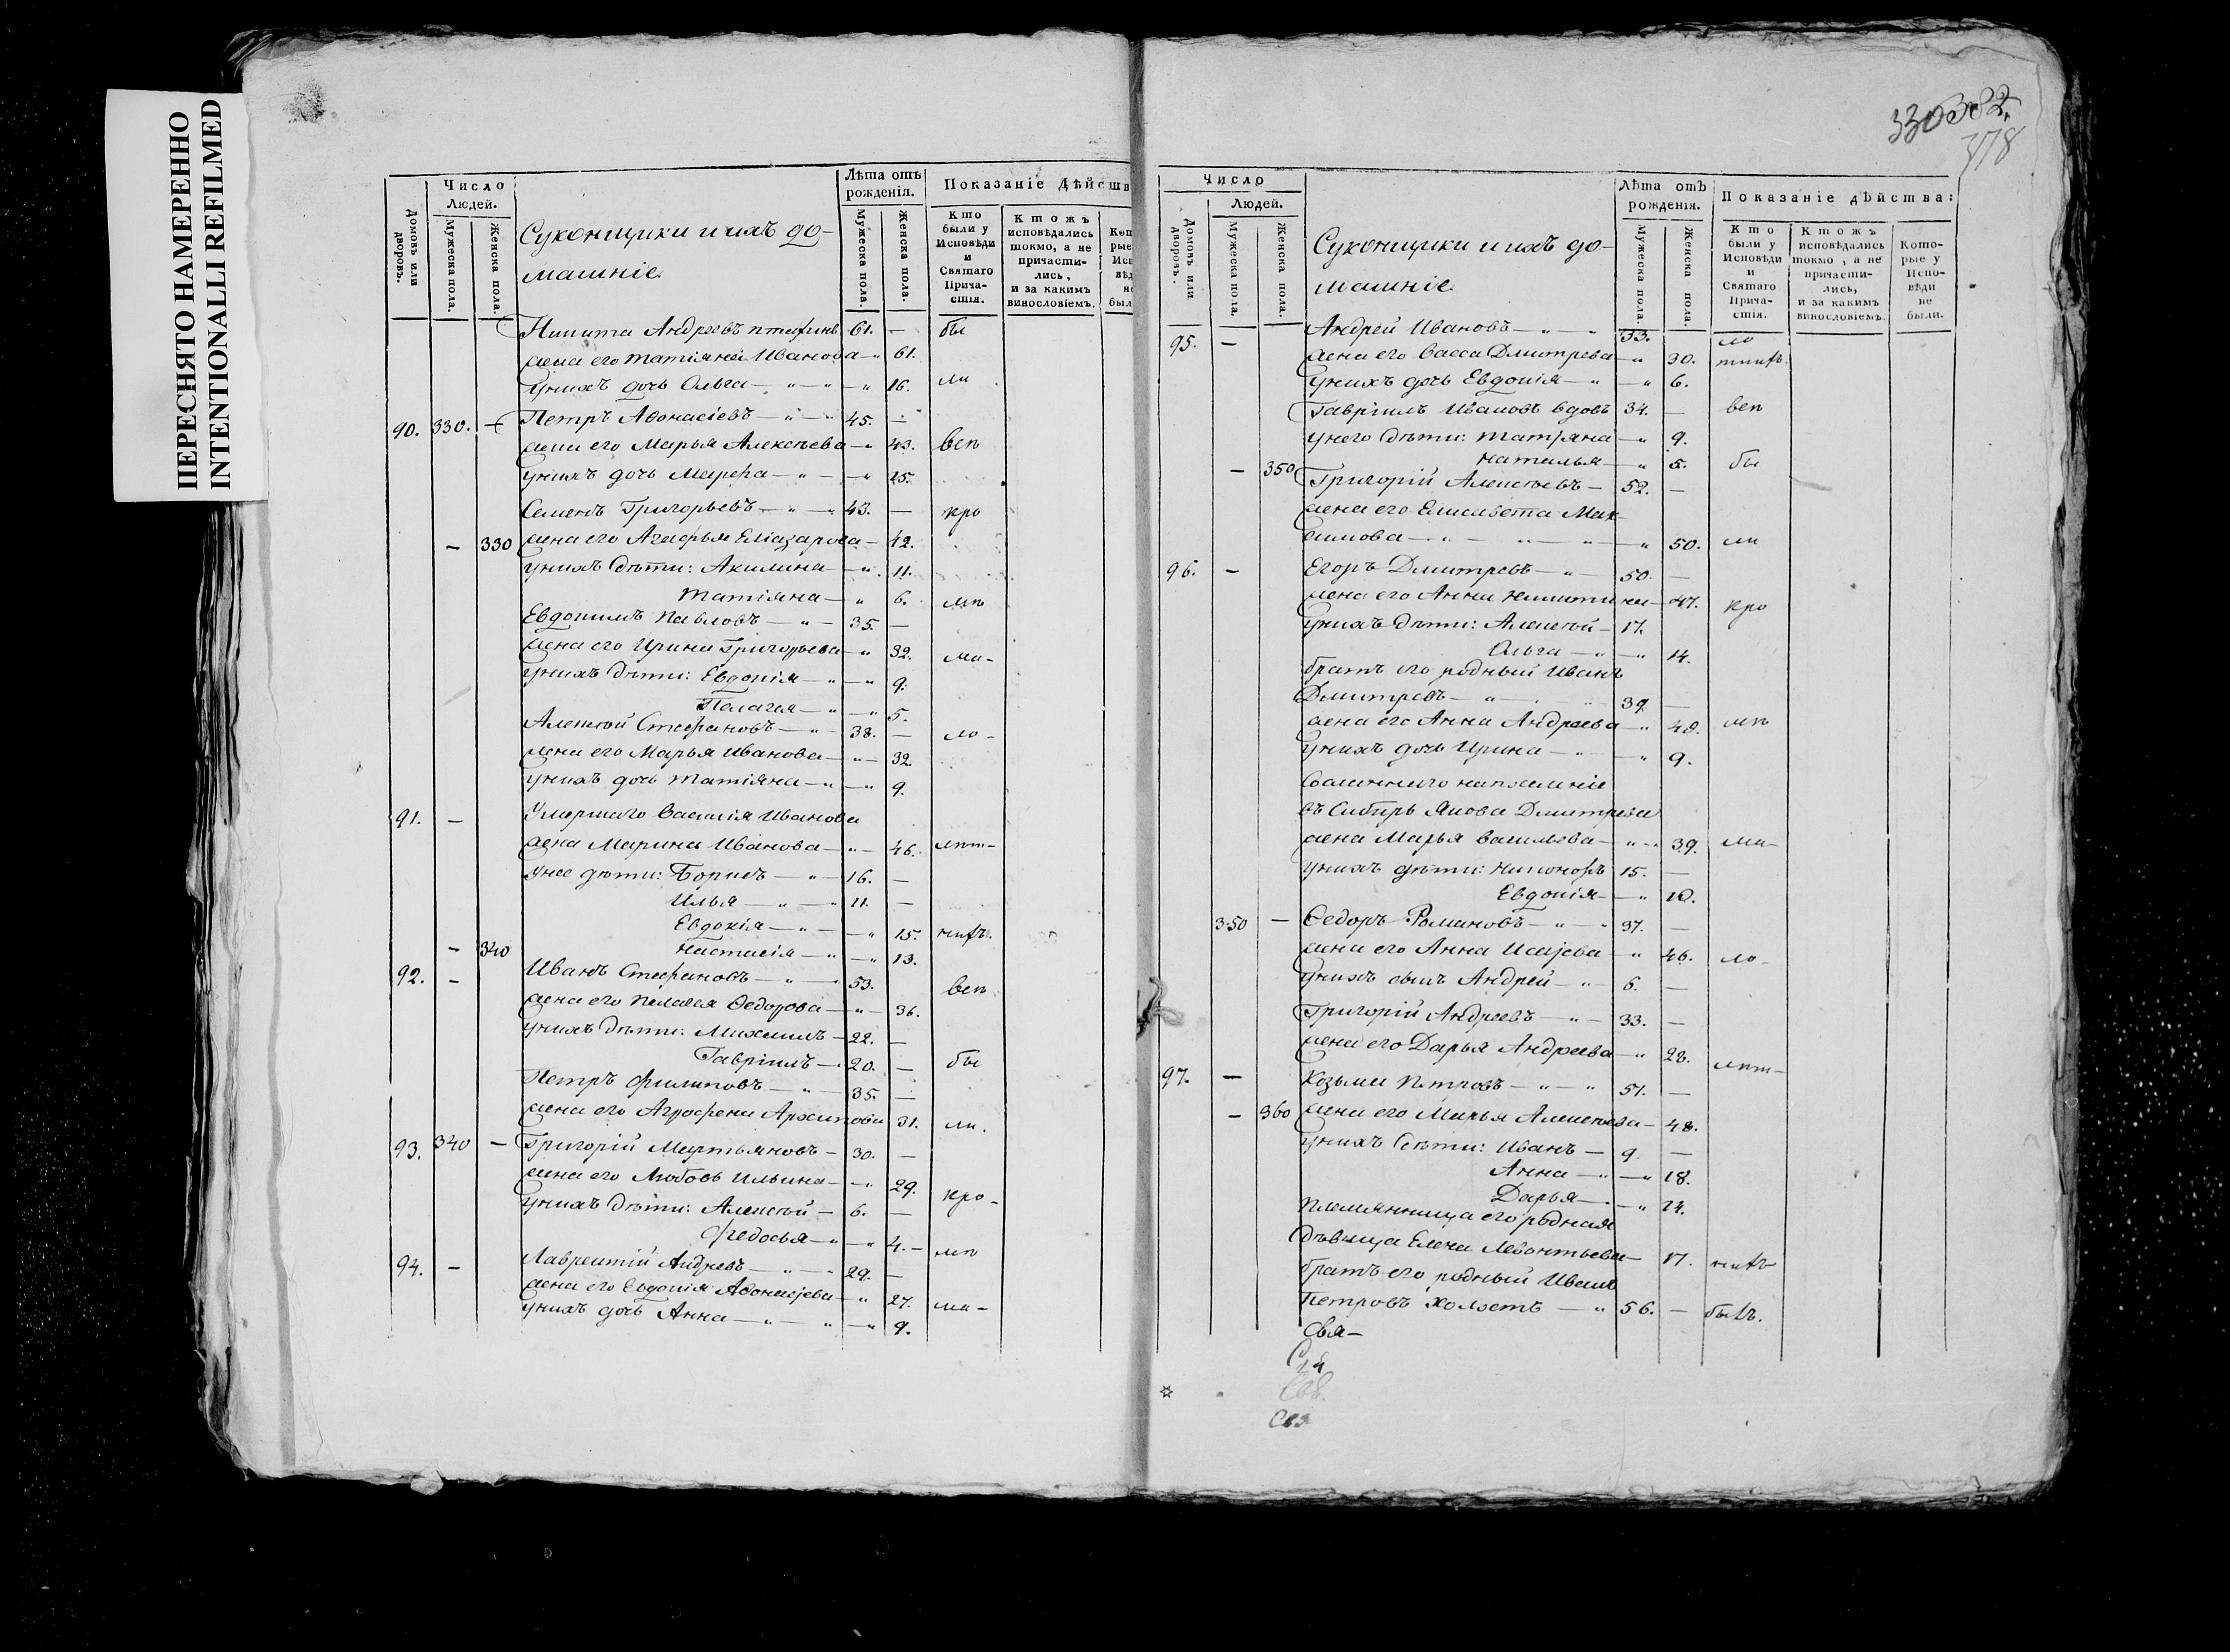 ПЕРЕСНЯТО НАМЕРЕННО
INTENTIONALLI REFILMED
Число
Людей.
Домовъ или дворовъ.
Мужеска пола.
Женска пола.
Суконщики и ихъ до-
машніе
Лѣта отъ рожденія.
Мужеска пола.
Женска пола.
Показаніе Дѣйств
Кто были у Исповѣди и Святаго Прича-стія.
Ктожъ исповѣдались токмо, а не причасти-лись, и за какимъ винословіемъ.
Никита Андреевъ 61. — бы
жена его Татіяна Иванова — 61.
у нихъ дочь Ольга — 16. ли
90. 330. — Петръ Афонасіевъ 45. —
жена его Марья Алексѣева — 43. всѣ
у нихъ дочь Марѳа — 15.
Семенъ Григорьевъ 43. — кро
— 330 жена его Агафья Еліазарова — 42.
у нихъ дѣти: Акилина — 11.
Татіяна — 6. мѣ
Евдокимъ Павловъ 35. —
жена его Ирина Григорьева — 32. ма-
у нихъ дѣти: Евдокія — 9.
Пелагея — 5.
Алексѣй Стефановъ 38. — ло-
жена его Марья Иванова — 32.
у нихъ дочь Татіяна — 9.
91. — Умершаго Василія Иванова
жена Марина Иванова — 46. лѣт-
у нее дѣти: Борисъ 16. —
Илья 11. —
Евдокія — 15. нихъ.
— 340 Настасія — 13.
92. — Иванъ Стефановъ 53. всѣ
жена его Пелагея Федорова — 36.
у нихъ дѣти: Михаилъ 22. —
Гавріилъ 20. — бы
Петръ Филиповъ 35. —
жена его Аграфена Архипова 31. ли.
93. 340 — Григорій Мартьяновъ 30. —
жена его Любовь Ильина — 29. кро-
у нихъ дѣти: Алексѣй 6. —
Федосья — 4. — мѣ
94. — Лаврентій Андреевъ 29. —
жена его Евдокія Афонасьева — 27. ма-
у нихъ дочь Анна — 9.
378
Число
Людей.
Домовъ или дворовъ.
Мужеска пола.
Женска пола.
Суконщики и ихъ до-
машніе
Лѣта отъ рожденія.
Мужеска пола.
Женска пола.
Показаніе дѣйства:
Кто были у Исповѣди и Святаго Прича-стія.
Ктожъ исповѣдались токмо, а не причасти-лись, и за какимъ винословіемъ.
Кото-рые у Испо-вѣди не были.
95. — Андрей Ивановъ 33. ло
жена его Васса Дмитрева — 30.
у нихъ дочь Евдокія — 6.
Гавріилъ Ивановъ вдовъ 34. — всѣ
у него дѣти: Татіяна — 9.
— 350 Наталья — 5. бы
Григорій Алексѣевъ — 52. —
жена его Елисавета Мак-
симова — 50. ли
96. — Егоръ Дмитревъ 50. —
жена его Анна Никитина — 47. кро
у нихъ дѣти: Алексѣй 17.
Ольга — 14.
братъ его родный Иванъ
Дмитревъ 39. —
жена его Анна Андреева — 40. мѣ
у нихъ дочь Ирина — 9.
Сосланнаго на поселеніе
въ Сибирь Якова Дмитрева
жена Марья Васильева — 39. ма-
у нихъ дѣти: Никоноръ 15. —
Евдокія — 10.
350 — Федоръ Романовъ 37. —
жена его Анна Исаева — 46. ло-
у нихъ сынъ Андрей 6. —
Григорій Андреевъ 33. —
жена его Дарья Андреева — 28. лѣт-
97. — Козьма Петровъ 51. —
— 360 жена его Марья Алексѣева — 48.
у нихъ дѣти: Иванъ 9. —
Анна — 18.
Дарья — 14.
Племянница его родная
дѣвица Елена Леонтьева — 17. нихъ
братъ его родный Иванъ
Петровъ холостъ 56. — былъ.
Свя-